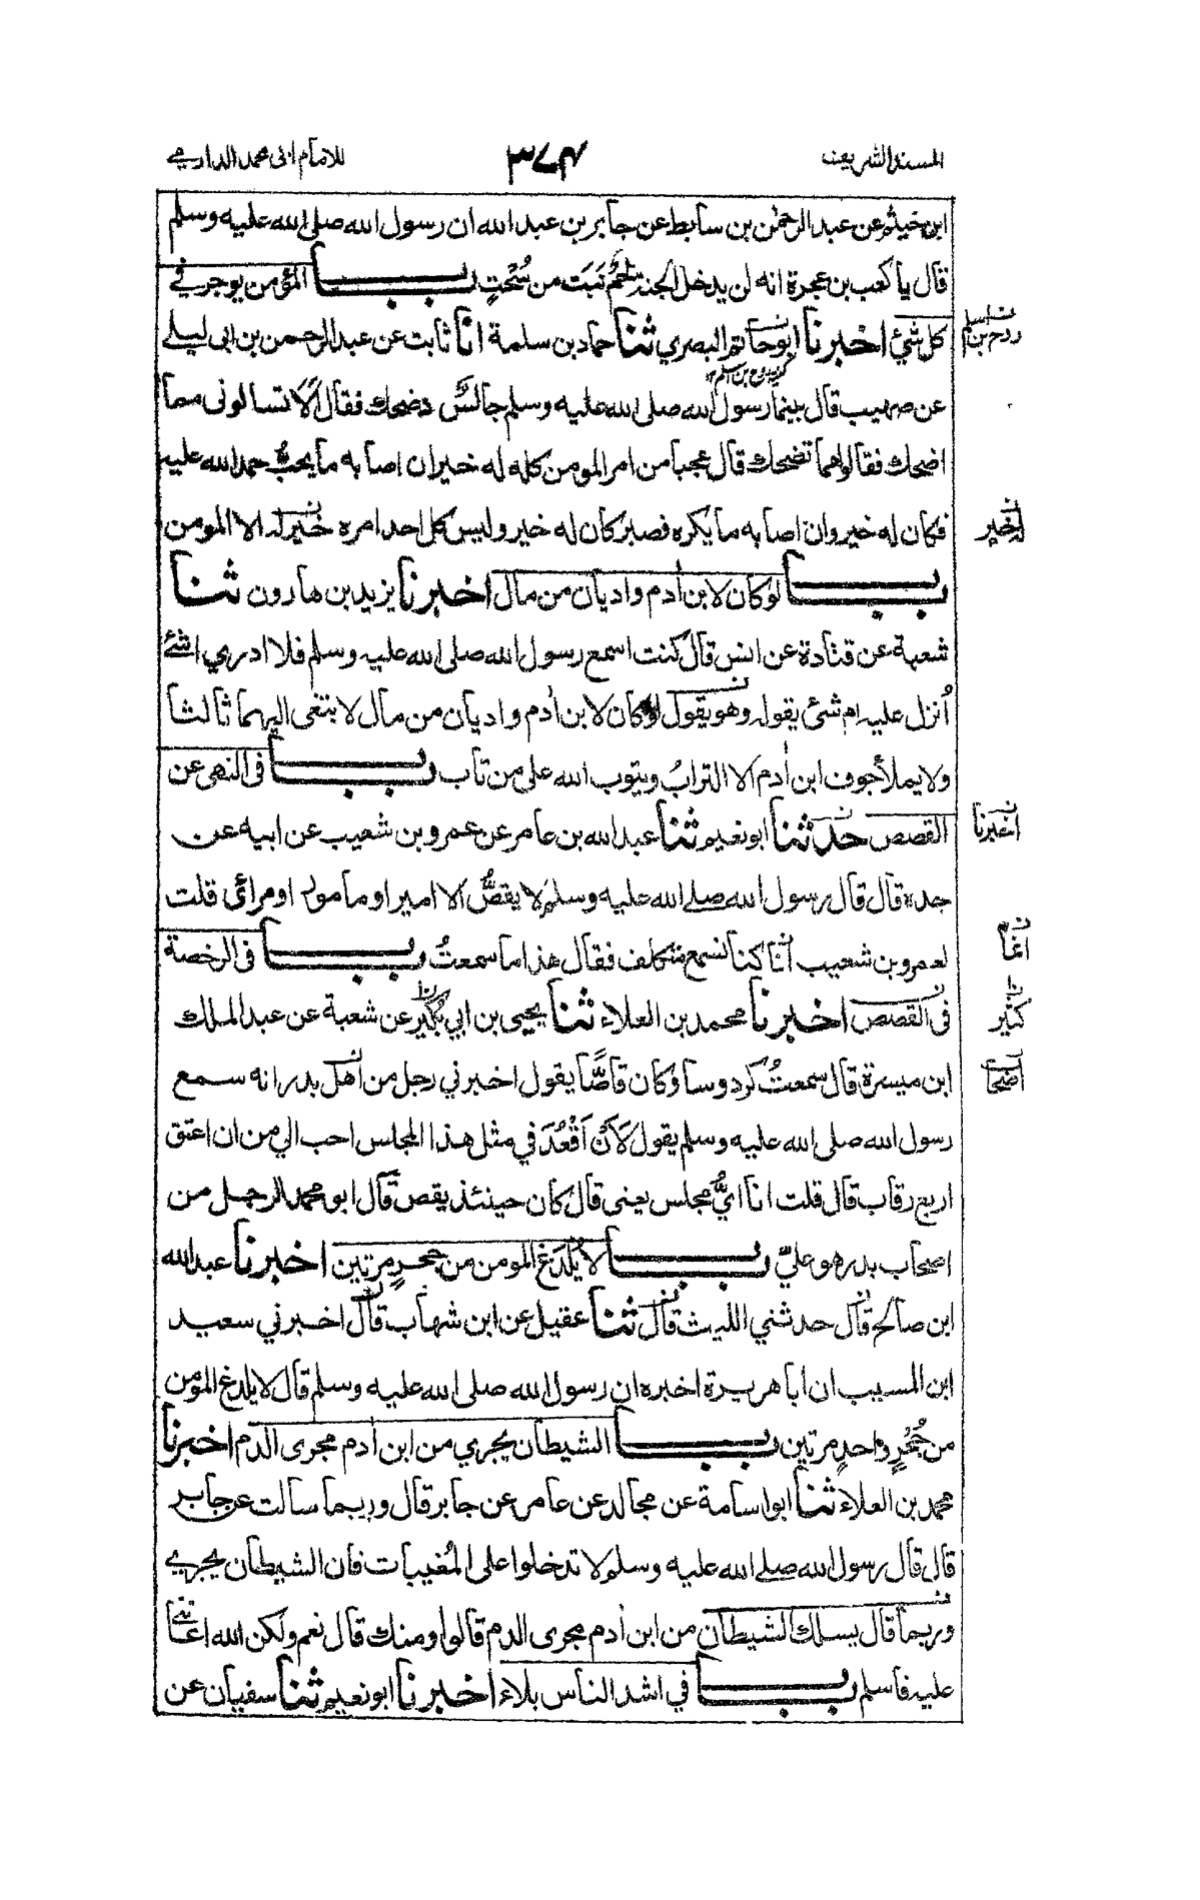 المسند الشريف ٣٧٤ للامام ابی محمد الدارمے
ابن خيثم عن عبد الرحمٰن بن سابط عن جابر بن عبد الله ان رسول الله صلى الله عليه وسلم
قال يا كعب بن عجرة انه لن يدخل الجنة لحمٌ نَبَتَ من سُحْتٍ باب المؤمن يوجر فے
كل شئ اخبرنا ابو حاتم البصري ثنا حماد بن سلمة انا ثابت عن عبد الرحمن بن ابی ليلے
روح بن اسلم
كنيته روح بن اسلم ١٢
عن صهيب قال بينما رسول الله صلى الله عليه وسلم جالسٌ اذ ضحك فقال الا تسالونی مما
اضحك فقالوا مما تضحك قال عجبا من امر المومن كله له خير ان اصابه ما يحبُّ حمد الله عليه
فكان له خير وان اصابه ما يكره فصبر كان له خير وليس كل احد امره خير له الا المومن
باب لو كان لابن اٰدم واديان من مال اخبرنا يزيد بن هارون ثنا
شعبة عن قتادة عن انس قال كنت اسمع رسول الله صلى الله عليه وسلم فلا ادري اشئے
اُنزل عليه ام شئ يقوله وهو يقول لو كان لابن اٰدم واديان من مال لابتغى اليهما ثالثا
ولا يملأ جوف ابن اٰدم الا الترابُ ويتوب الله على من تاب باب فی النهى عن
القصص حدثنا ابو نعيم ثنا عبد الله بن عامر عن عمرو بن شعيب عن ابيه عن
اخبرنا
جده قال قال رسول الله صلے الله عليه وسلم لا يقصُّ الا امير او مامور او مرائی قلت
لعمرو بن شعيب انا كنا نسمع متكلف فقال هذا ما سمعتُ باب فی الرخصة
انما
فی القصص اخبرنا محمد بن العلاء ثنا يحيى بن ابي بُكَير عن شعبة عن عبد الملك
كثير
ابن ميسرة قال سمعتُ كردوسا وكان قاصًّا يقول اخبرني رجل من اهل بدر انه سمع
اصحاب
رسول الله صلى الله عليه وسلم يقول لَاَنْ اَقْعُدَ في مثل هذا المجلس احب الي من ان اعتق
اربع رقاب قال قلت انا ايُّ مجلس يعنى قال كان حينئذ يقص قال ابو محمد الرجل من
اصحاب بدر هو علىٌّ باب لا يُلْدَغ المومن من جحر مرتين اخبرنا عبد الله
ابن صالح قال حدثني الليث قال ثنا عقيل عن ابن شهاب قال اخبرني سعيد
ابن المسيب ان ابا هريرة اخبره ان رسول الله صلى الله عليه وسلم قال لا يلدغ المؤمن
من جُحْرٍ واحدٍ مرتين باب الشيطان يجري من ابن اٰدم مجرى الدم اخبرنا
محمد بن العلاء ثنا ابو اسامة عن مجالد عن عامر عن جابر قال وربما سالت عن جابر
قال قال رسول الله صلے الله عليه وسلم لا تدخلوا على المُغيبات فان الشيطان يجري
وربما قال يسلك الشيطان من ابن اٰدم مجرى الدم قالوا ومنك قال نعم ولكن الله اعاننے
عليه فاسلم باب في اشد الناس بلاء اخبرنا ابو نعيم ثنا سفيان عن